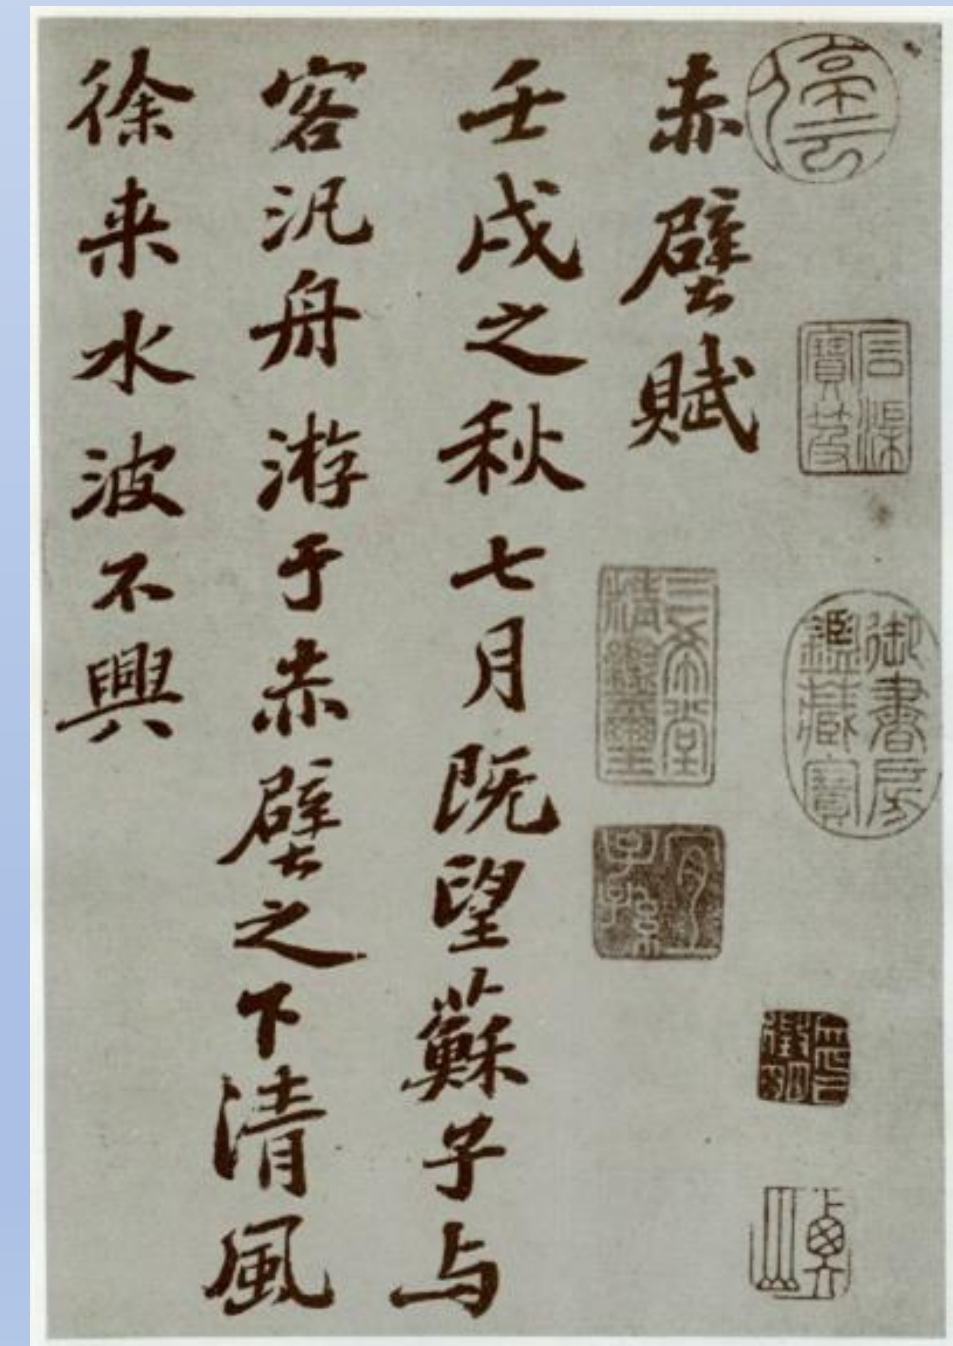 赤壁賦
壬戌之秋七月既望蘇子与
客汎舟游于赤壁之下清風
徐来水波不興
御書房鑑藏寶
三希堂精鑑璽
宜子孫